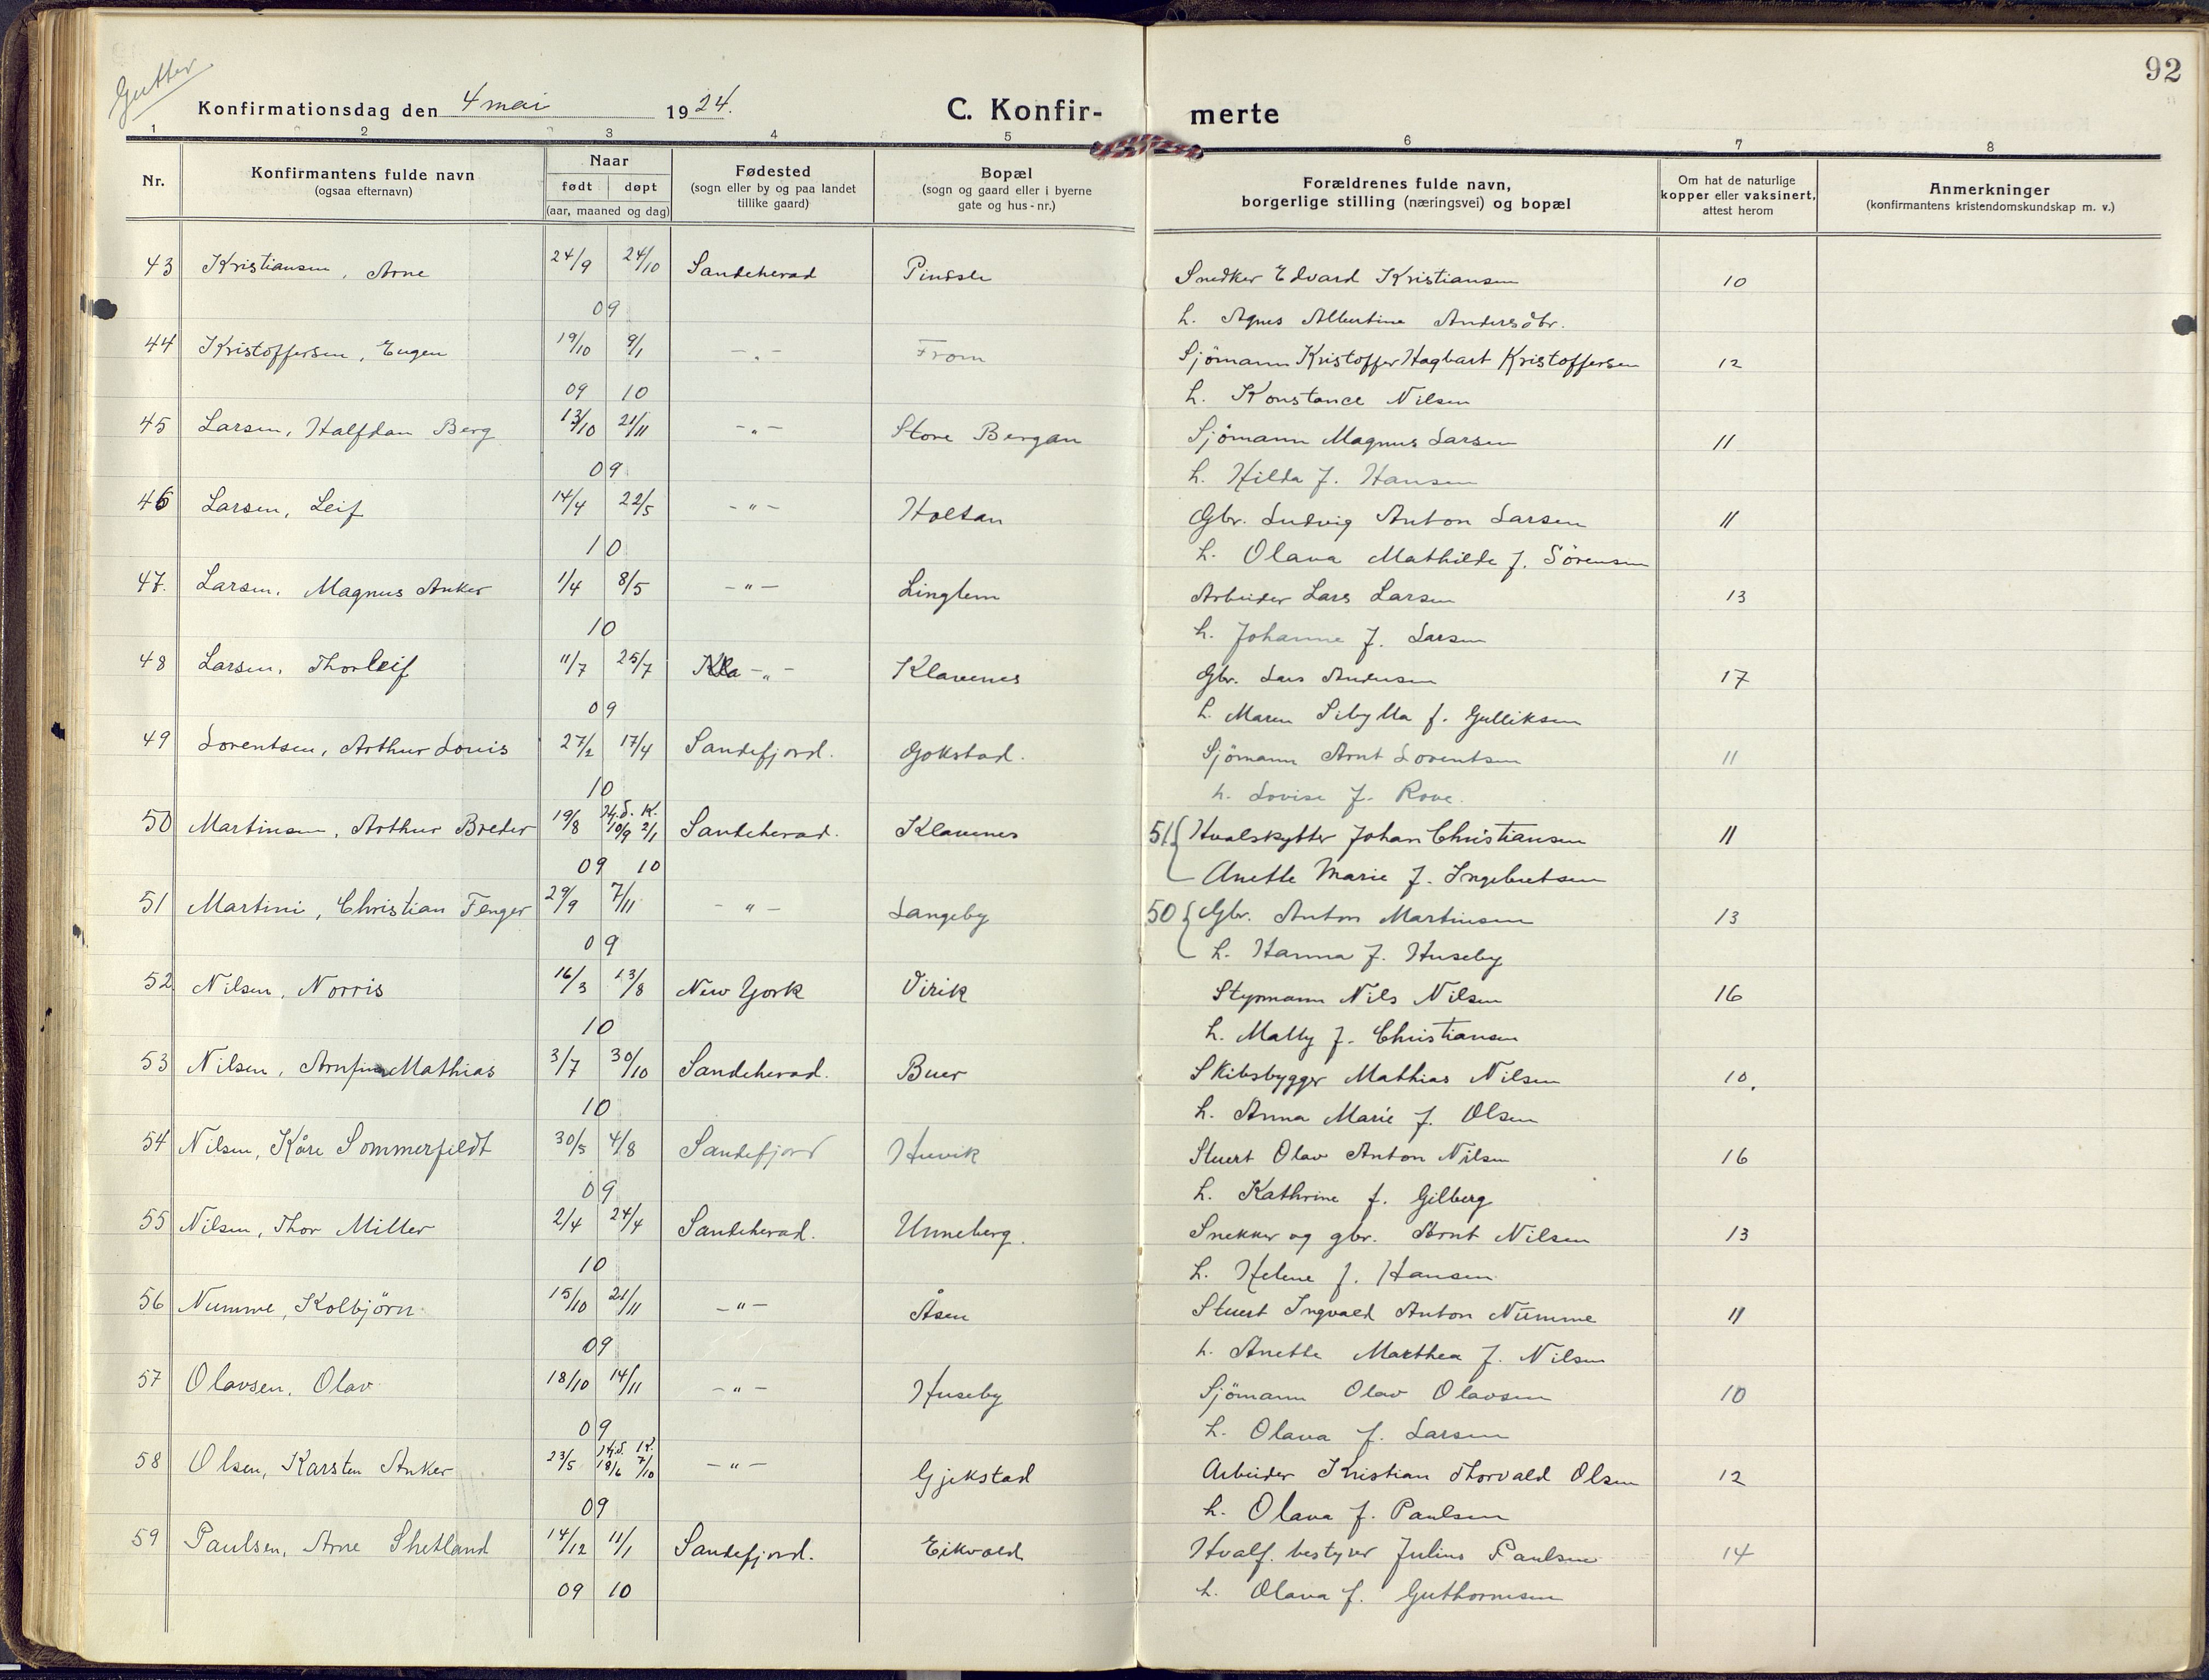 92
Gutter
Konfirmationsdag den 4 mai 1924. C. Konfir- merte
1 2 3 4 5 6 7 8
Nr. Konfirmantens fulde navn (ogsaa efternavn) Naar født døpt (aar, maaned og dag) Fødested (sogn eller by og paa landet tillike gaard) Bopæl (sogn og gaard eller i byerne gate og hus-nr.) Forældrenes fulde navn, borgerlige stilling (næringsvei) og bopæl Om hat de naturlige kopper eller vaksinert, attest herom Anmerkninger (konfirmantens kristendomskundskap m. v.)
43 Kristiansen, Arne 24/9 24/10 Sandeherad Pindsle Snedker Edvard Kristiansen 10
09 h. Agnes Albertine Andersdtr.
44 Kristoffersen, Eugen 19/10 9/1 -„- From Sjömann Kristoffer Hagbart Kristoffersen 12
09 10 h. Konstance Nilsen
45 Larsen, Halfdan Berg 13/10 21/11 -„- Store Bergan Sjömann Magnus Larsen 11
09 h. Hilda f. Hansen
46 Larsen, Leif 14/4 22/5 -„- Holtan Gbr. Ludvig Anton Larsen 11
10 h. Olava Mathilde f. Sörensen
47. Larsen, Magnus Anker 1/4 8/5 -„- Linglem Arbeider Lars Larsen 13
10 h. Johanne f. Larsen
48 Larsen, Thorleif 11/7 25/7 Kla -„- Klavenes Gbr. Lars Andersen 17
09 h. Maren Sibylla f. Gulliksen
49 Lorentsen, Arthur Louis 27/2 17/4 Sandefjord. Gokstad. Sjömann Arnt Lorentsen 11
10 h. Lovise f. Rove.
50 Martinsen, Arthur Breder 19/8 Hj.d. K. 10/9 2/1 Sandeherad. Klavenes 51{ Hvalskytter Johan Christiansen 11
09 10 Anette Marie f. Ingebretsen
51 Martini, Christian Fenger 29/9 7/11 -„- Langeby 50{ Gbr. Anton Martinsen 13
09 h. Hanna f. Huseby
52 Nilsen, Norris 16/3 13/8 New York Virik Styrmann Nils Nilsen 16
10 h. Mally f. Christiansen
53 Nilsen, Arnfinn Mathias 3/7 30/10 Sandeherad. Buer Skibsbygger Mathias Nilsen 10.
10 h. Anna Marie f. Olsen
54 Nilsen, Kåre Sommerfeldt 30/5 4/8 Sandefjord Huvik Stuert Olav Anton Nilsen 16
09 h. Kathrine f. Gilberg
55 Nilsen, Thor Miller 2/4 24/4 Sandeherad. Unneberg. Snekker og gbr. Arnt Nilsen 13
10 h. Helene f. Hansen
56 Numme, Kolbjörn 15/10 21/11 -„- Åsen Stuert Ingvald Anton Numme 11
09 h. Anette Marthea f. Nilsen
57 Olavsen, Olav 18/10 14/11 -„- Huseby Sjömann Olav Olavsen 10
09 h. Olava f. Larsen
58 Olsen, Karsten Anker 23/5 Hj.d. K. 18/6 7/10 -„- Gjekstad Arbeider Kristian Thorvald Olsen 12
09 h. Olava f. Paulsen
59 Paulsen, Arne Shetland 14/12 11/1 Sandefjord. Eikvold Hvalf. bestyrer Julius Paulsen 14
09 10 h. Olava f. Guthormsen